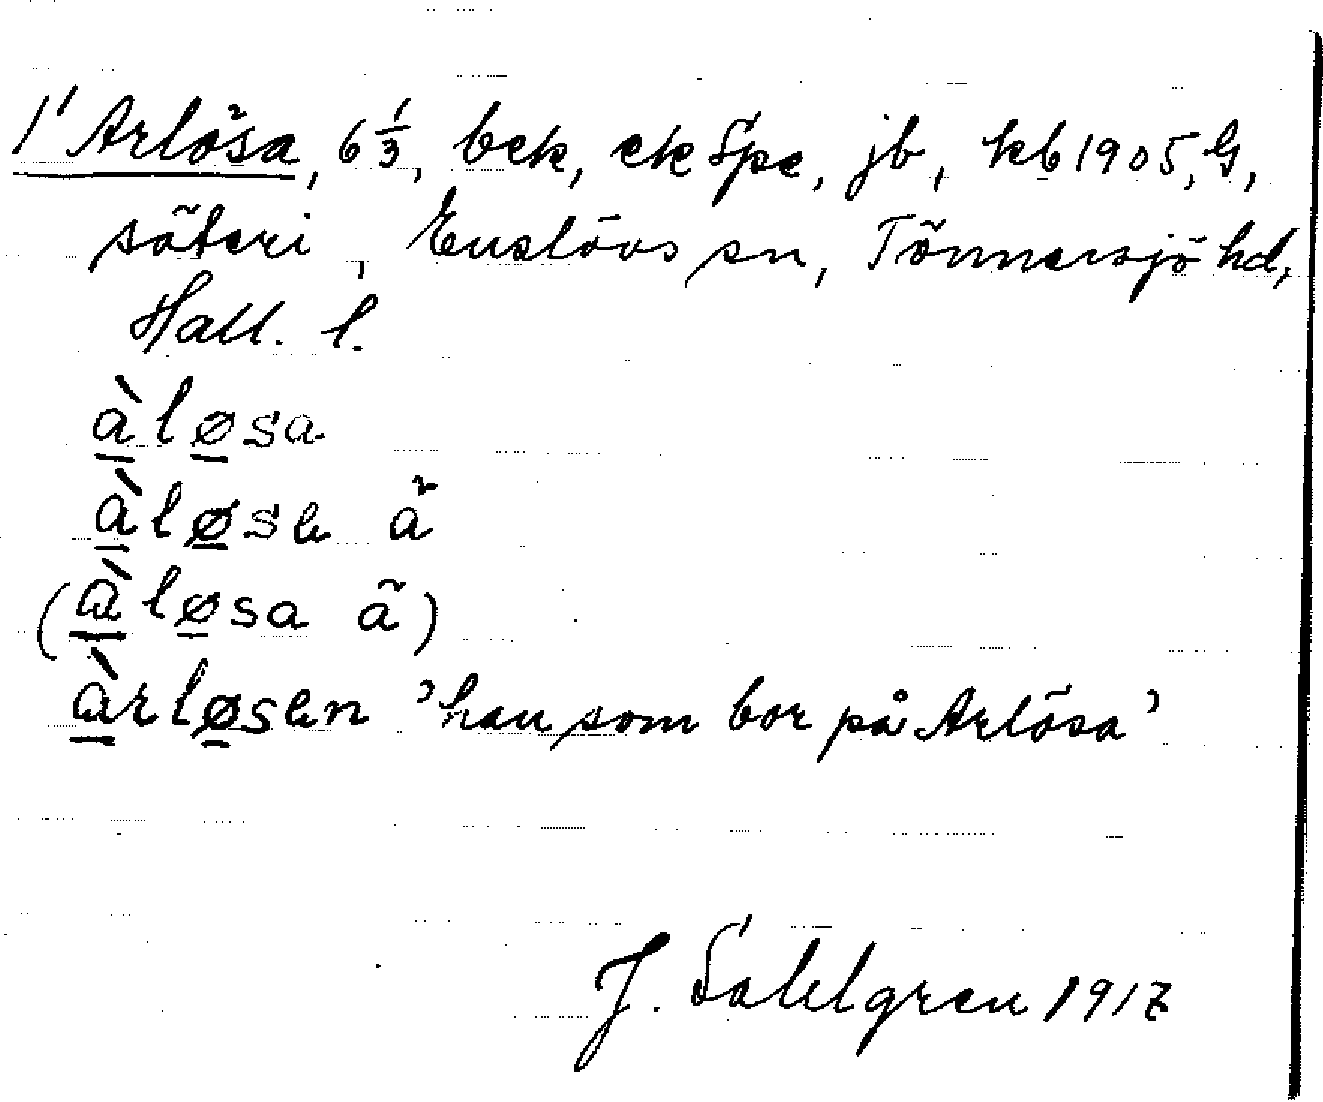 1' Arlösa, 6 1/3, bek, ek Spe, jb, kb 1905, G,
säteri, Enslövs sn, Tönnersjö hd,
Hall. l.
àløsa
àløse ã
(àløsa ã)
àrløsen 'han som bor på Arlösa'
J. Sahlgren 1917